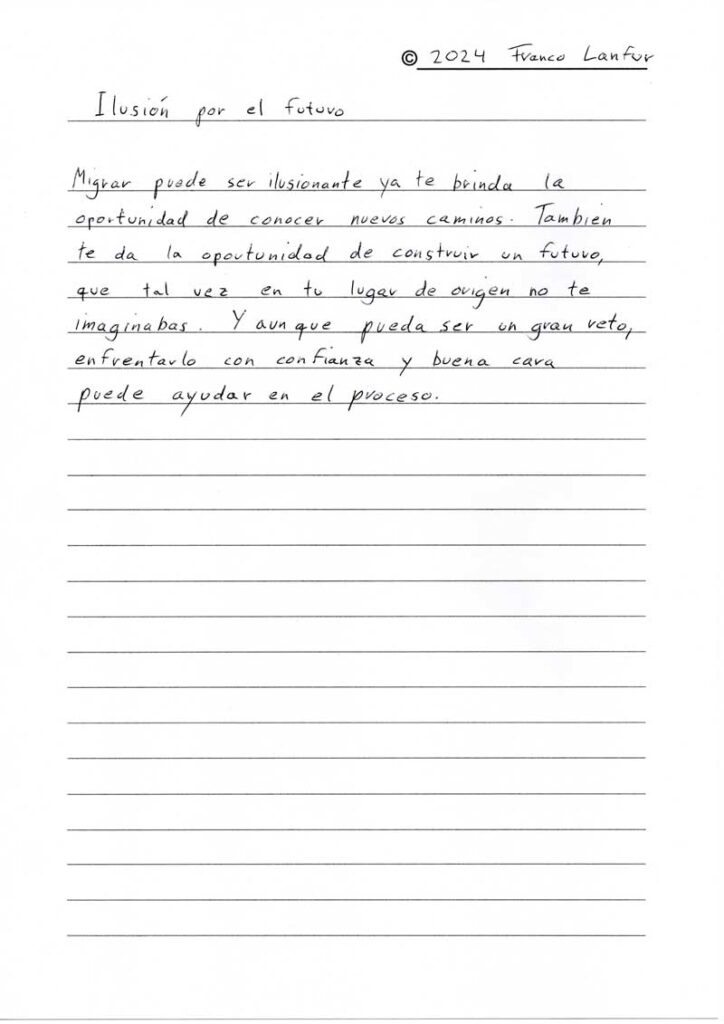 © 2024 Franco Lanfur
Ilusión por el futuro
Migrar puede ser ilusionante ya te brinda la
oportunidad de conocer nuevos caminos. También
te da la oportunidad de construir un futuro,
que tal vez en tu lugar de origen no te
imaginabas. Y aunque pueda ser un gran reto,
enfrentarlo con confianza y buena cara
puede ayudar en el proceso.